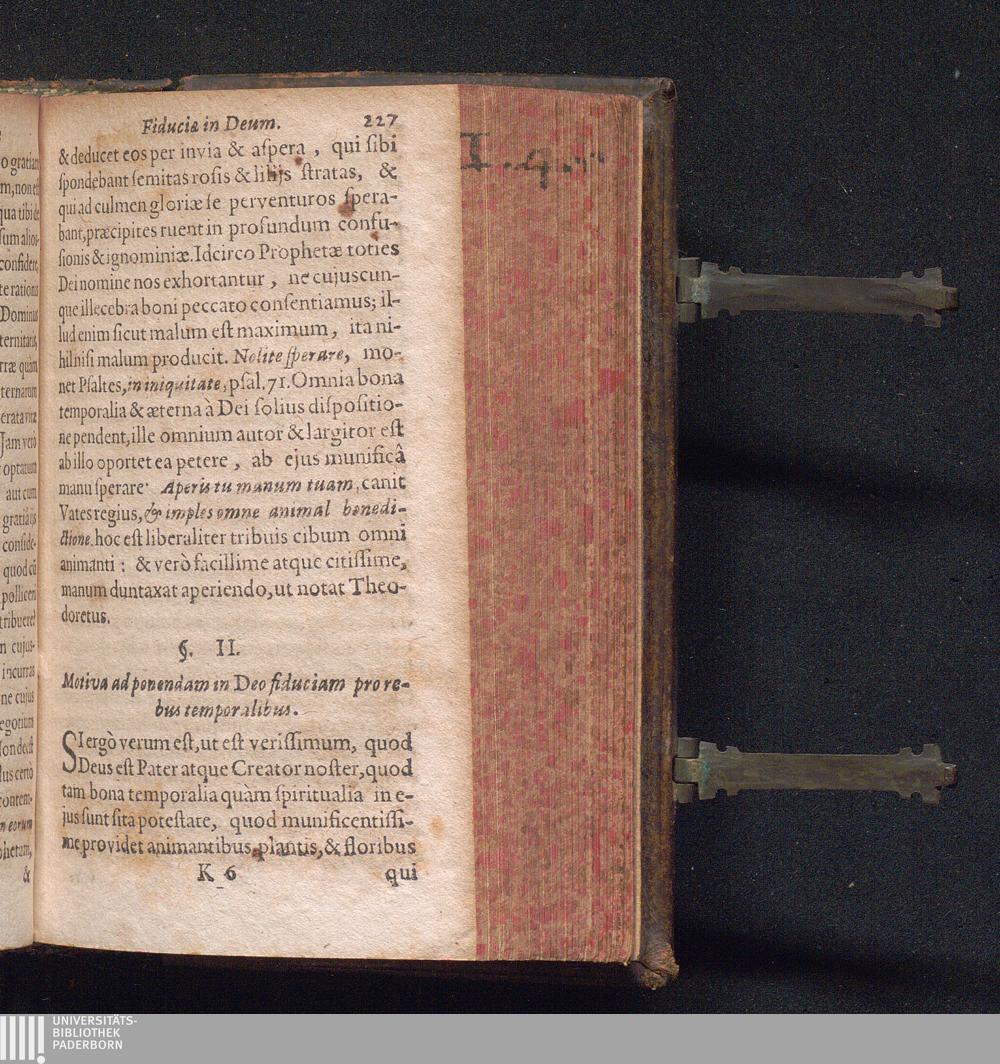 Fiduciæ in Deum. 227
& deducet eos per invia & aſpera, qui ſibi
ſpondebant ſemitas roſis & lilijs ſtratas, &
qui ad culmen gloriæ ſe perventuros ſpera-
bant, præcipites ruent in profundum confu-
ſionis & ignominiæ. Idcirco Prophetæ toties
Dei nomine nos exhortantur, ne cujuscun-
que illecebra boni peccato conſentiamus; il-
lud enim ſicut malum eſt maximum, ita ni-
hil niſi malum producit. Nolite ſperare, mo-
net Pſaltes, in iniquitate, pſal. 71. Omnia bona
temporalia & æterna à Dei ſolius diſpoſitio-
ne pendent, ille omnium autor & largitor eſt
ab illo oportet ea petere, ab ejus munificâ
manu ſperare. Aperis tu manum tuam, canit
Vates regius, & imples omne animal benedi-
ctione, hoc eſt liberaliter tribuis cibum omni
animanti: & verò facillime atque citiſſime,
manum duntaxat aperiendo, ut notat Theo-
doretus.
§. II.
Motiva ad ponendam in Deo fiduciam pro re-
bus temporalibus.
SI ergò verum eſt, ut eſt veriſſimum, quod
Deus eſt Pater atque Creator noſter, quod
tam bona temporalia quàm ſpiritualia in e-
jus ſunt ſita poteſtate, quod munificentiſſi-
me providet animantibus, plantis, & floribus
K 6 qui
o gratiam
qua tibi de
confidere
te rationa
Dominus
ternitatis,
ternarum
Jam verò
optatum
aut cum
confide-
quod cū
n cujus-
incurras
ne cujus
egotium
lus certò
contem-
n eorum
&
UNIVERSITÄTS-
BIBLIOTHEK
PADERBORN